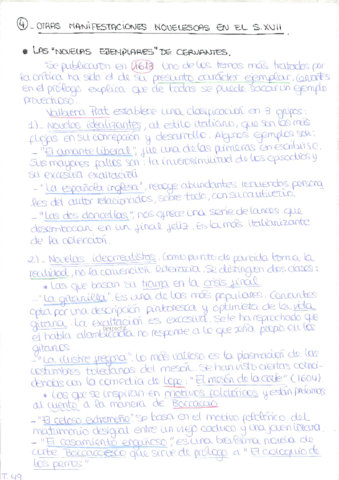 ④ - OTRAS MANIFESTACIONES NOVELESCAS EN EL S.XVII
• LAS "NOVELAS EJEMPLARES" DE CERVANTES.
Se publicaron en 1613. Uno de los temas más tratados por
la crítica ha sido el de su presunto carácter ejemplar. Cervantes
en el prólogo explica que de todas se puede sacar un ejemplo
provechoso.
Valbuena Prat establece una clasificación en 3 grupos:
1) - Novelas idealizantes, al estilo italiano, que son las más
flojas en su concepción y desarrollo. Algunos ejemplos son:
- "El amante liberal"; fue una de las primeras en escribirse.
Sus mayores fallos son: la inverosimilitud de los episodios y
su excesiva exaltación.
- "La española inglesa", recoge abundantes recuerdos persona
les del autor relacionados, sobre todo, con su cautiverio.
- "Las dos doncellas"; nos ofrece una serie de lances que
desembocan en un final feliz. Es la más italianizante
de la colección.
2) - Novelas ideorrealistas. Como punto de partida toman la
realidad, no la convención literaria. Se distinguen dos clases:
• Las que basan su trama en la crisis final
- "La gitanilla". Es una de las más populares. Cervantes
opta por una descripción pintoresca y optimista de la vida
gitana. La exaltación es excesiva, se le ha reprochado que
el habla alambicada no responde a lo que sería propio en los
gitanos.
- "La ilustre fregona". Lo más valioso es la plasmación de las
costumbres toledanas del mesón. Se han visto ciertas coinci-
dencias con la comedia de Lope: "El mesón de la corte" (1604).
• Las que se inspiran en motivos folclóricos y están próximas
al cuento a la manera de Boccaccio
- "El celoso extremeño" se basa en el motivo folclórico del
matrimonio desigual entre un viejo caduco y una joven tierna.
- "El casamiento engañoso": es una brevísima novela de
corte Boccaccesco que sirve de prólogo a "El coloquio de
los perros"
T.49